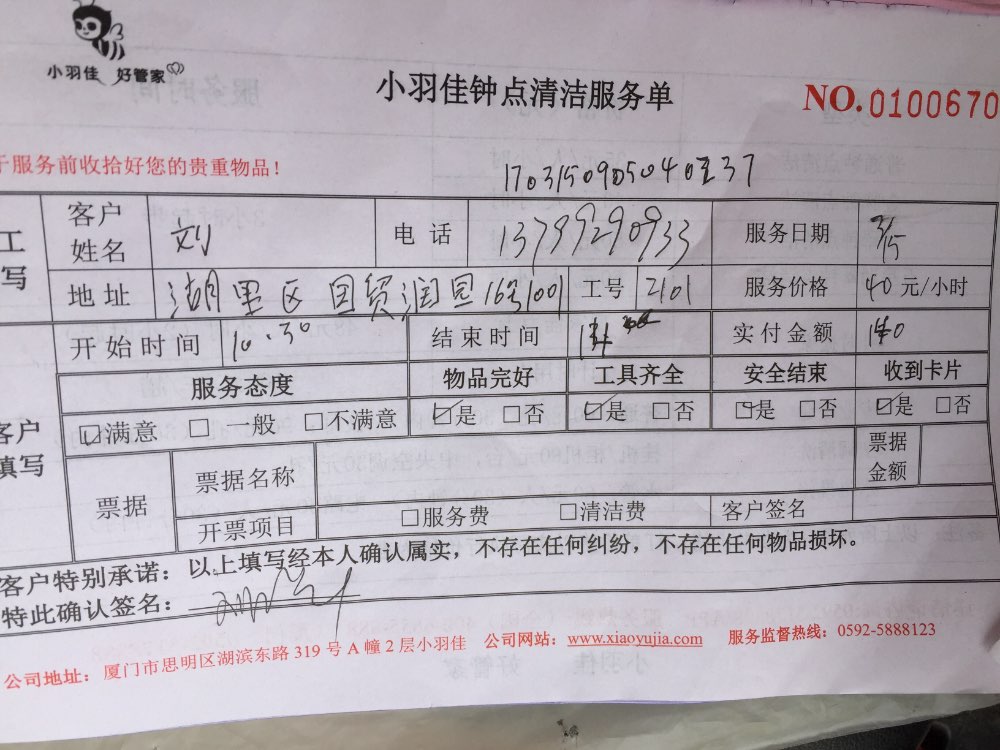 小羽佳 好管家
小羽佳钟点清洁服务单
NO.0100670
于服务前收拾好您的贵重物品!
工
写
客户
姓名
刘
电话
13799290933
服务日期
3/15
地址
湖里区国贸润园16号1001
工号
2101
服务价格
40元/小时
开始时间
10.30
结束时间
实付金额
140
服务态度
物品完好
工具齐全
安全结束
收到卡片
客户
填写
☑满意 □ 一般 □不满意
☑是 □否
☑是 □否
☑是 □否
☑是 □否
票据
票据名称
票据
金额
开票项目
□服务费 □清洁费
客户签名
客户特别承诺:以上填写经本人确认属实,不存在任何纠纷,不存在任何物品损坏。
特此确认签名:
公司地址:厦门市思明区湖滨东路 319 号 A 幢 2 层小羽佳 公司网站:www.xiaoyujia.com 服务监督热线:0592-5888123